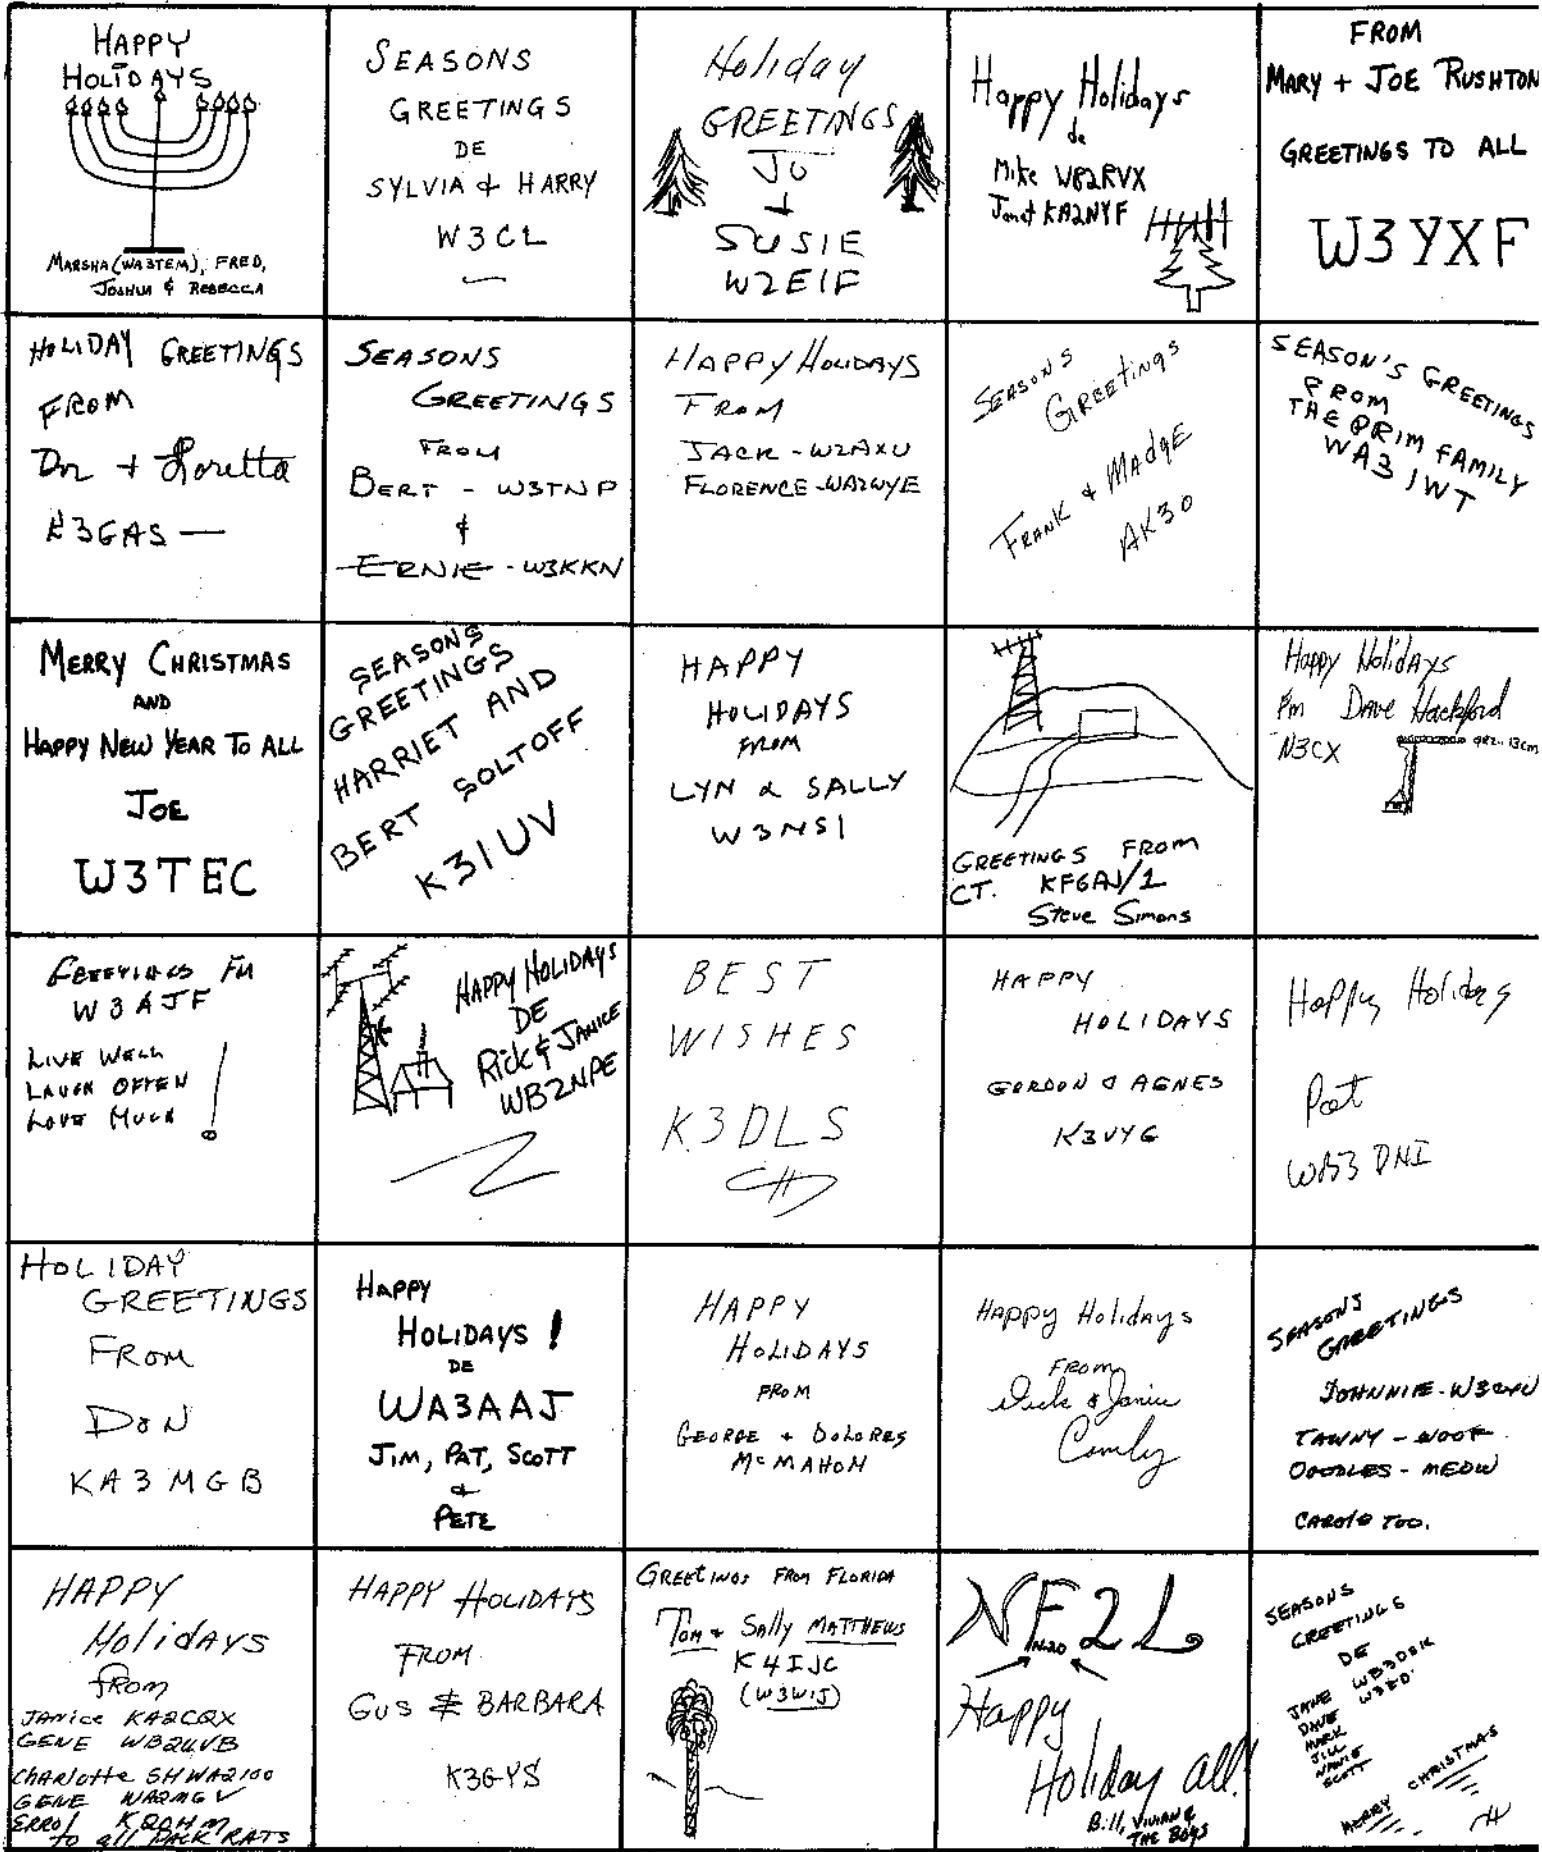 HAPPY
HOLIDAYS
MARSHA (WA3TEM), FRED,
JOSHUA & REBECCA
SEASONS
GREETINGS
DE
SYLVIA & HARRY
W3CL
Holiday
GREETINGS
JO
+
SUSIE
W2EIF
Happy Holidays
de
Mike WB2RVX
Janet KA2NYF
FROM
MARY + JOE RUSHTON
GREETINGS TO ALL
W3YXF
HOLIDAY GREETINGS
FROM
Don + Loretta
K3GAS —
SEASONS
GREETINGS
FROM
BERT - W3TNP
&
ERNIE - W3KKN
HAPPY HOLIDAYS
FROM
JACK - W2AXU
FLORENCE - WA2WYE
SEASONS
GREETINGS
FRANK & MADGE
AK3O
SEASON'S GREETINGS
FROM
THE PRIM FAMILY
WA3IWT
MERRY CHRISTMAS
AND
HAPPY NEW YEAR TO ALL
JOE
W3TEC
SEASONS
GREETINGS
HARRIET AND
BERT SOLTOFF
K3IUV
HAPPY
HOLIDAYS
FROM
LYN & SALLY
W3NSI
GREETINGS FROM
CT. KF6AJ/1
Steve Simons
Happy Holidays
Fm Dave Hackford
N3CX
13cm
GREETINGS FM
W3AJF
LIVE WELL
LAUGH OFTEN
LOVE MUCH !
HAPPY HOLIDAYS
DE
Rick & JANICE
WB2NPE
BEST
WISHES
K3DLS
HAPPY
HOLIDAYS
GORDON & AGNES
K3VYG
Happy Holidays
Pat
WB3DNI
HOLIDAY
GREETINGS
FROM
DON
KA3MGB
HAPPY
HOLIDAYS !
DE
WA3AAJ
JIM, PAT, SCOTT
&
PETE
HAPPY
HOLIDAYS
FROM
GEORGE + DOLORES
McMAHON
Happy Holidays
FROM
Dick & Janice
Comly
SEASONS
GREETINGS
JOHNNIE -
TAWNY - WOOF
OODLES - MEOW
CAROLE TOO.
HAPPY
Holidays
from
JANICE KA2CQX
GENE WB2UVB
Charlotte
GENE WA2MGV
ERROL
to all PACK RATS
HAPPY HOLIDAYS
FROM
GUS & BARBARA
K3GYS
GREETINGS FROM FLORIDA
Tom & Sally MATTHEWS
K4IJC
(W3WIJ)
NF2L
Happy
Holiday all!
Bill, VIVIAN &
THE BOYS
SEASONS
GREETINGS
DE
JANE
DAVE
MARK
JILL
SCOTT
MERRY CHRISTMAS